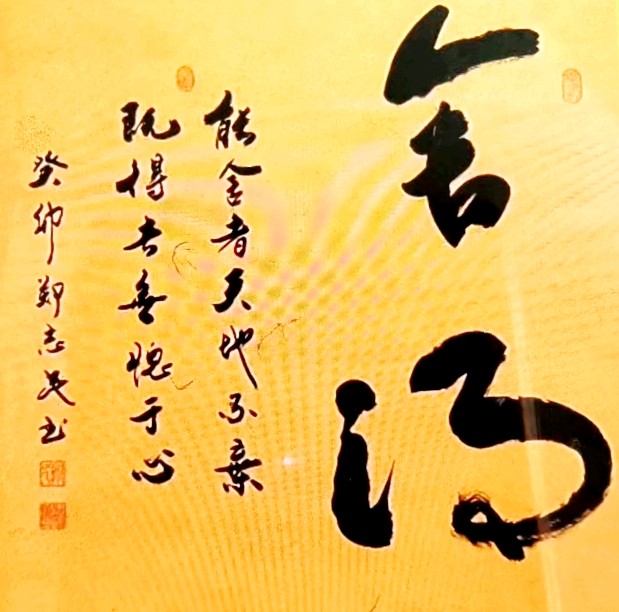 舍得
能舍者天地不棄
既得者無愧于心
癸卯鄭志英书